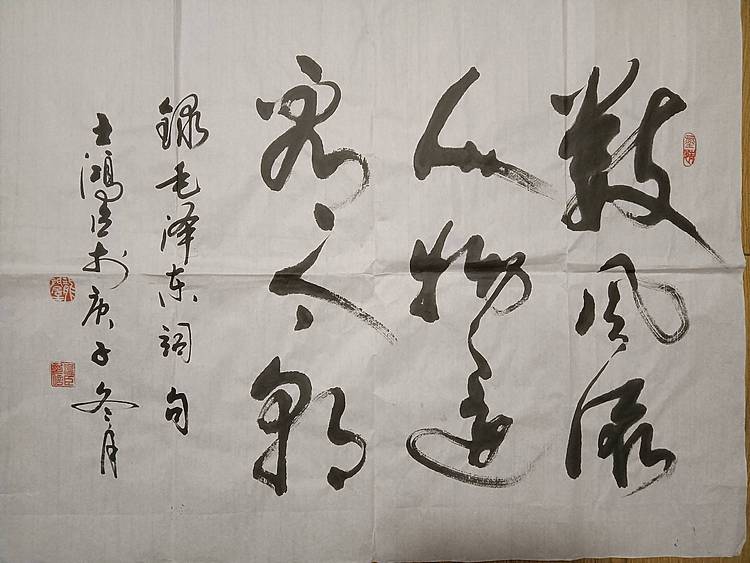 数风流
人物还
看今朝
録毛泽东词句
士鸿臣书於庚子冬月